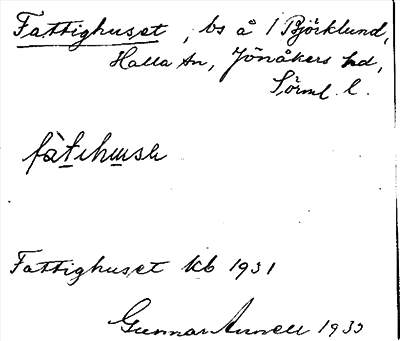 Fattighuset, bs å 1 Björklund,
Halla sn, Jönåkers hd,
Sörml. l.
fàtihusɘ
Fattighuset kb 1931
Gunnar 1935